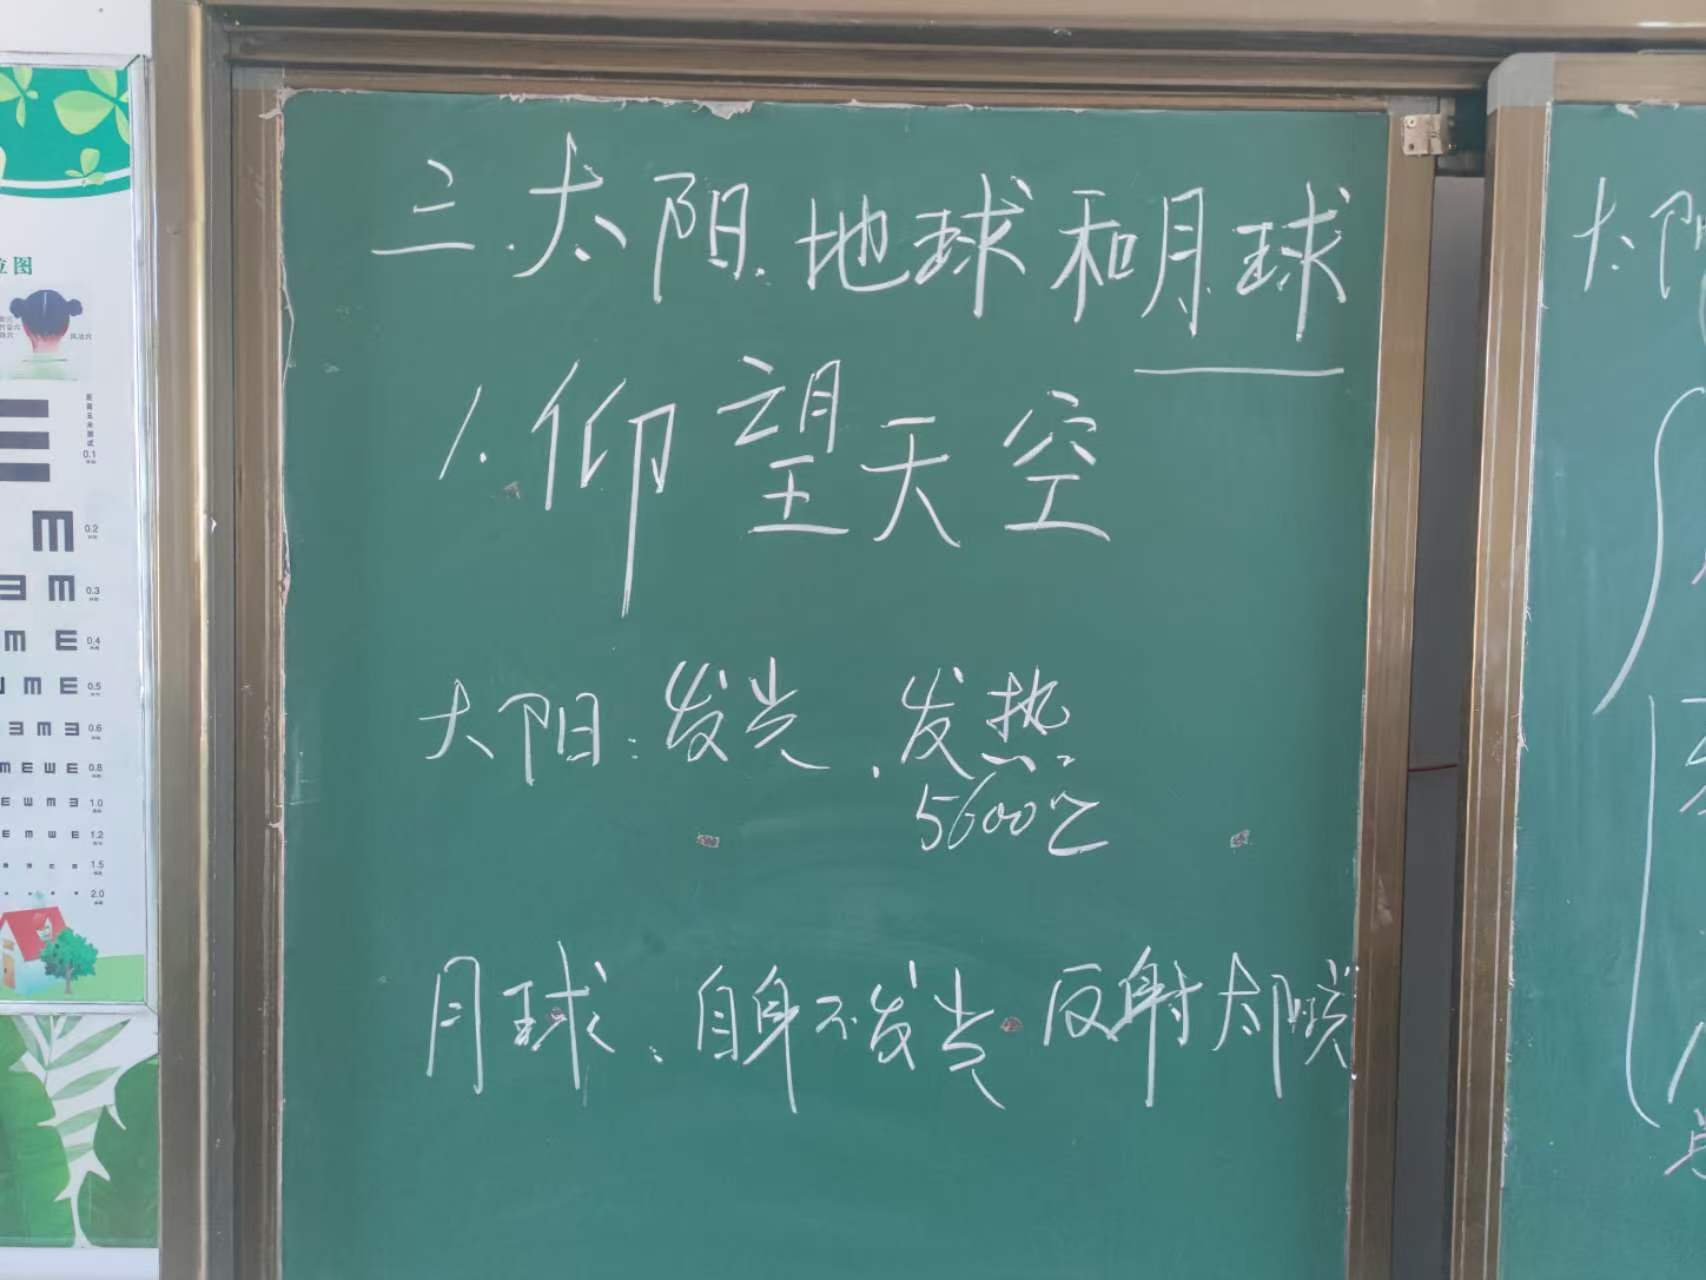 三.太阳.地球和月球
1.仰望天空
太阳:发光.发热
5600℃
月球.自身不发光.反射太阳光
太阳
位图
0.1
0.2
0.3
0.4
0.5
0.6
0.8
1.0
1.2
1.5
2.0